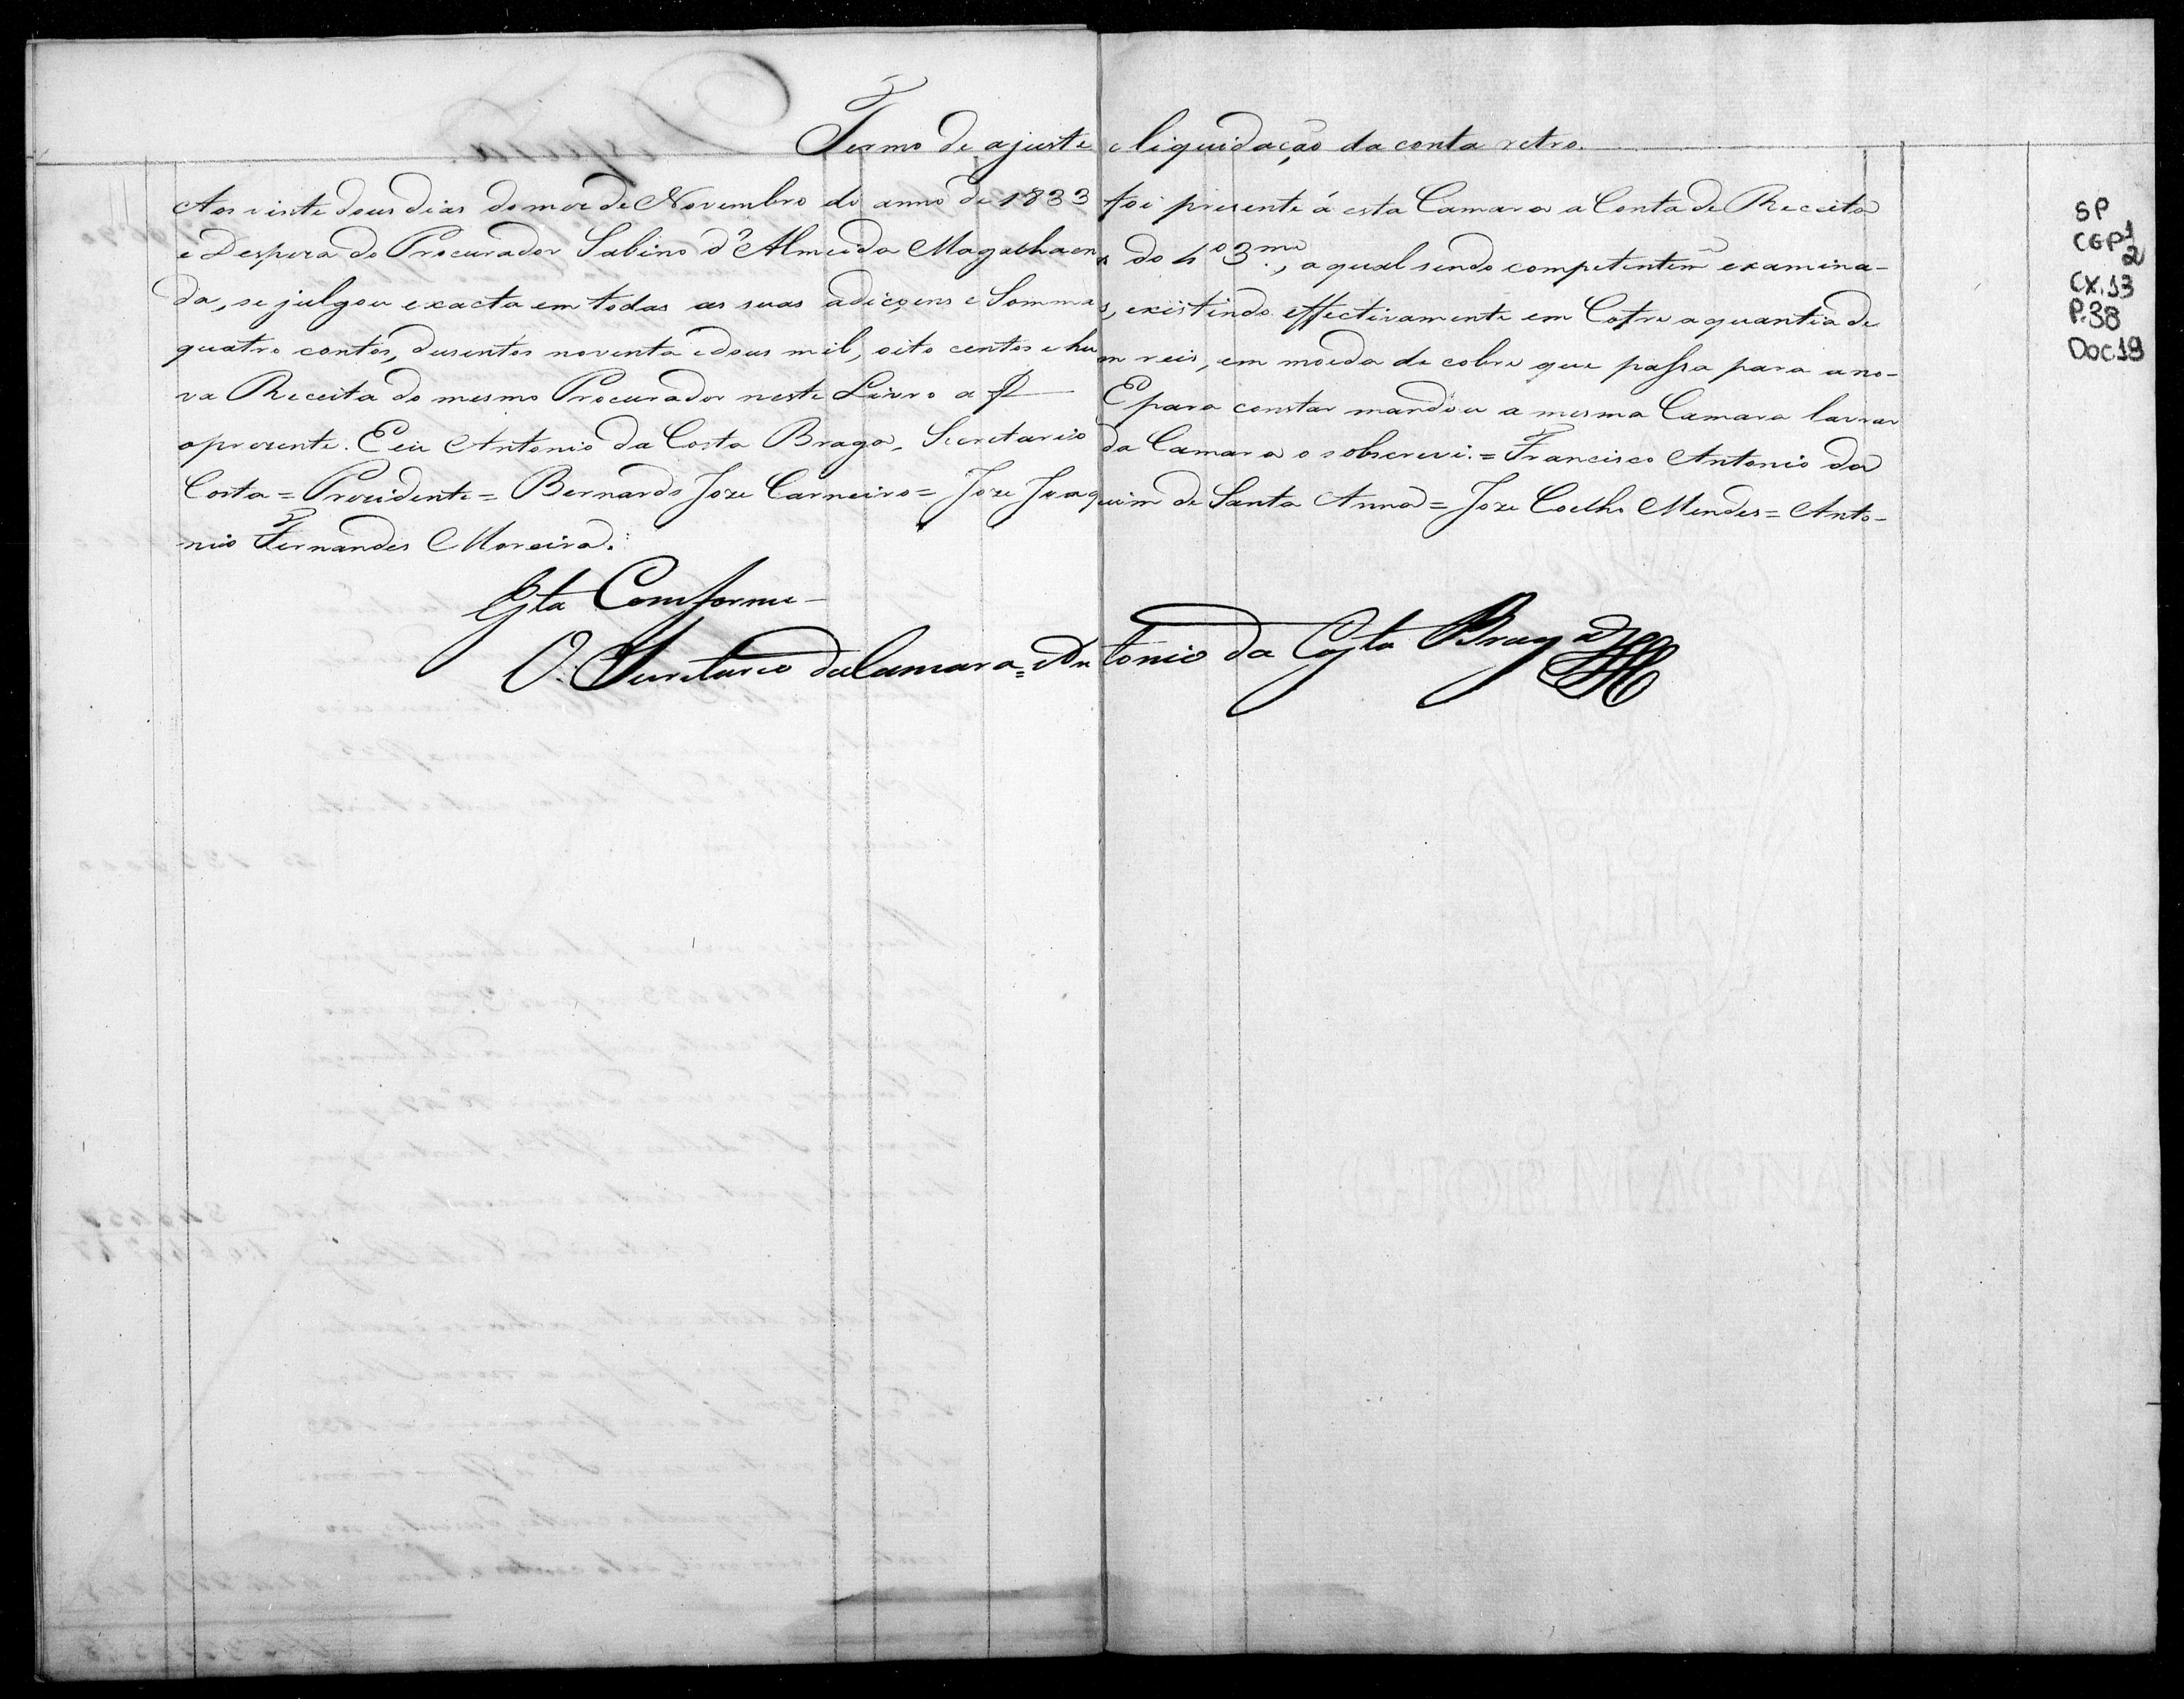 Termo de ajuste e liquidação da conta retro.
Aos vinte dous dias do mez de Novembro do anno de 1833 foi presente á esta Camara a Conta de Receita
e Despeza do Procurador Sabino d'Almeida Magalhaens do 4º 3.me, a qual sendo competentem.e examina-
da, se julgou exacta em todas as suas adicçoens e Sommas, existindo effectivamente em Cofre a quantia de
quatro contos, dusentos noventa e dous mil, oito centos e hum reis, em moeda de cobre que passa para a no-
va Receita do mesmo Procurador neste Livro a f E para constar mandou a mesma Camara lavrar
o prezente. E eu Antonio da Costa Braga, Secretario da Camara o sobscrevi. = Francisco Antonio da
Costa = Prezidente = Bernardo Joze Carneiro = Joze Joaquim de Santa Anna = Joze Coelho Mendes = Anto-
nio Fernandes Moreira.
Esta Comforme
O Secretario da Camara = Antonio da Costa Braga
SP
CGP1
2
CX.13
P.38
Doc.19
GIOR MAGNANI